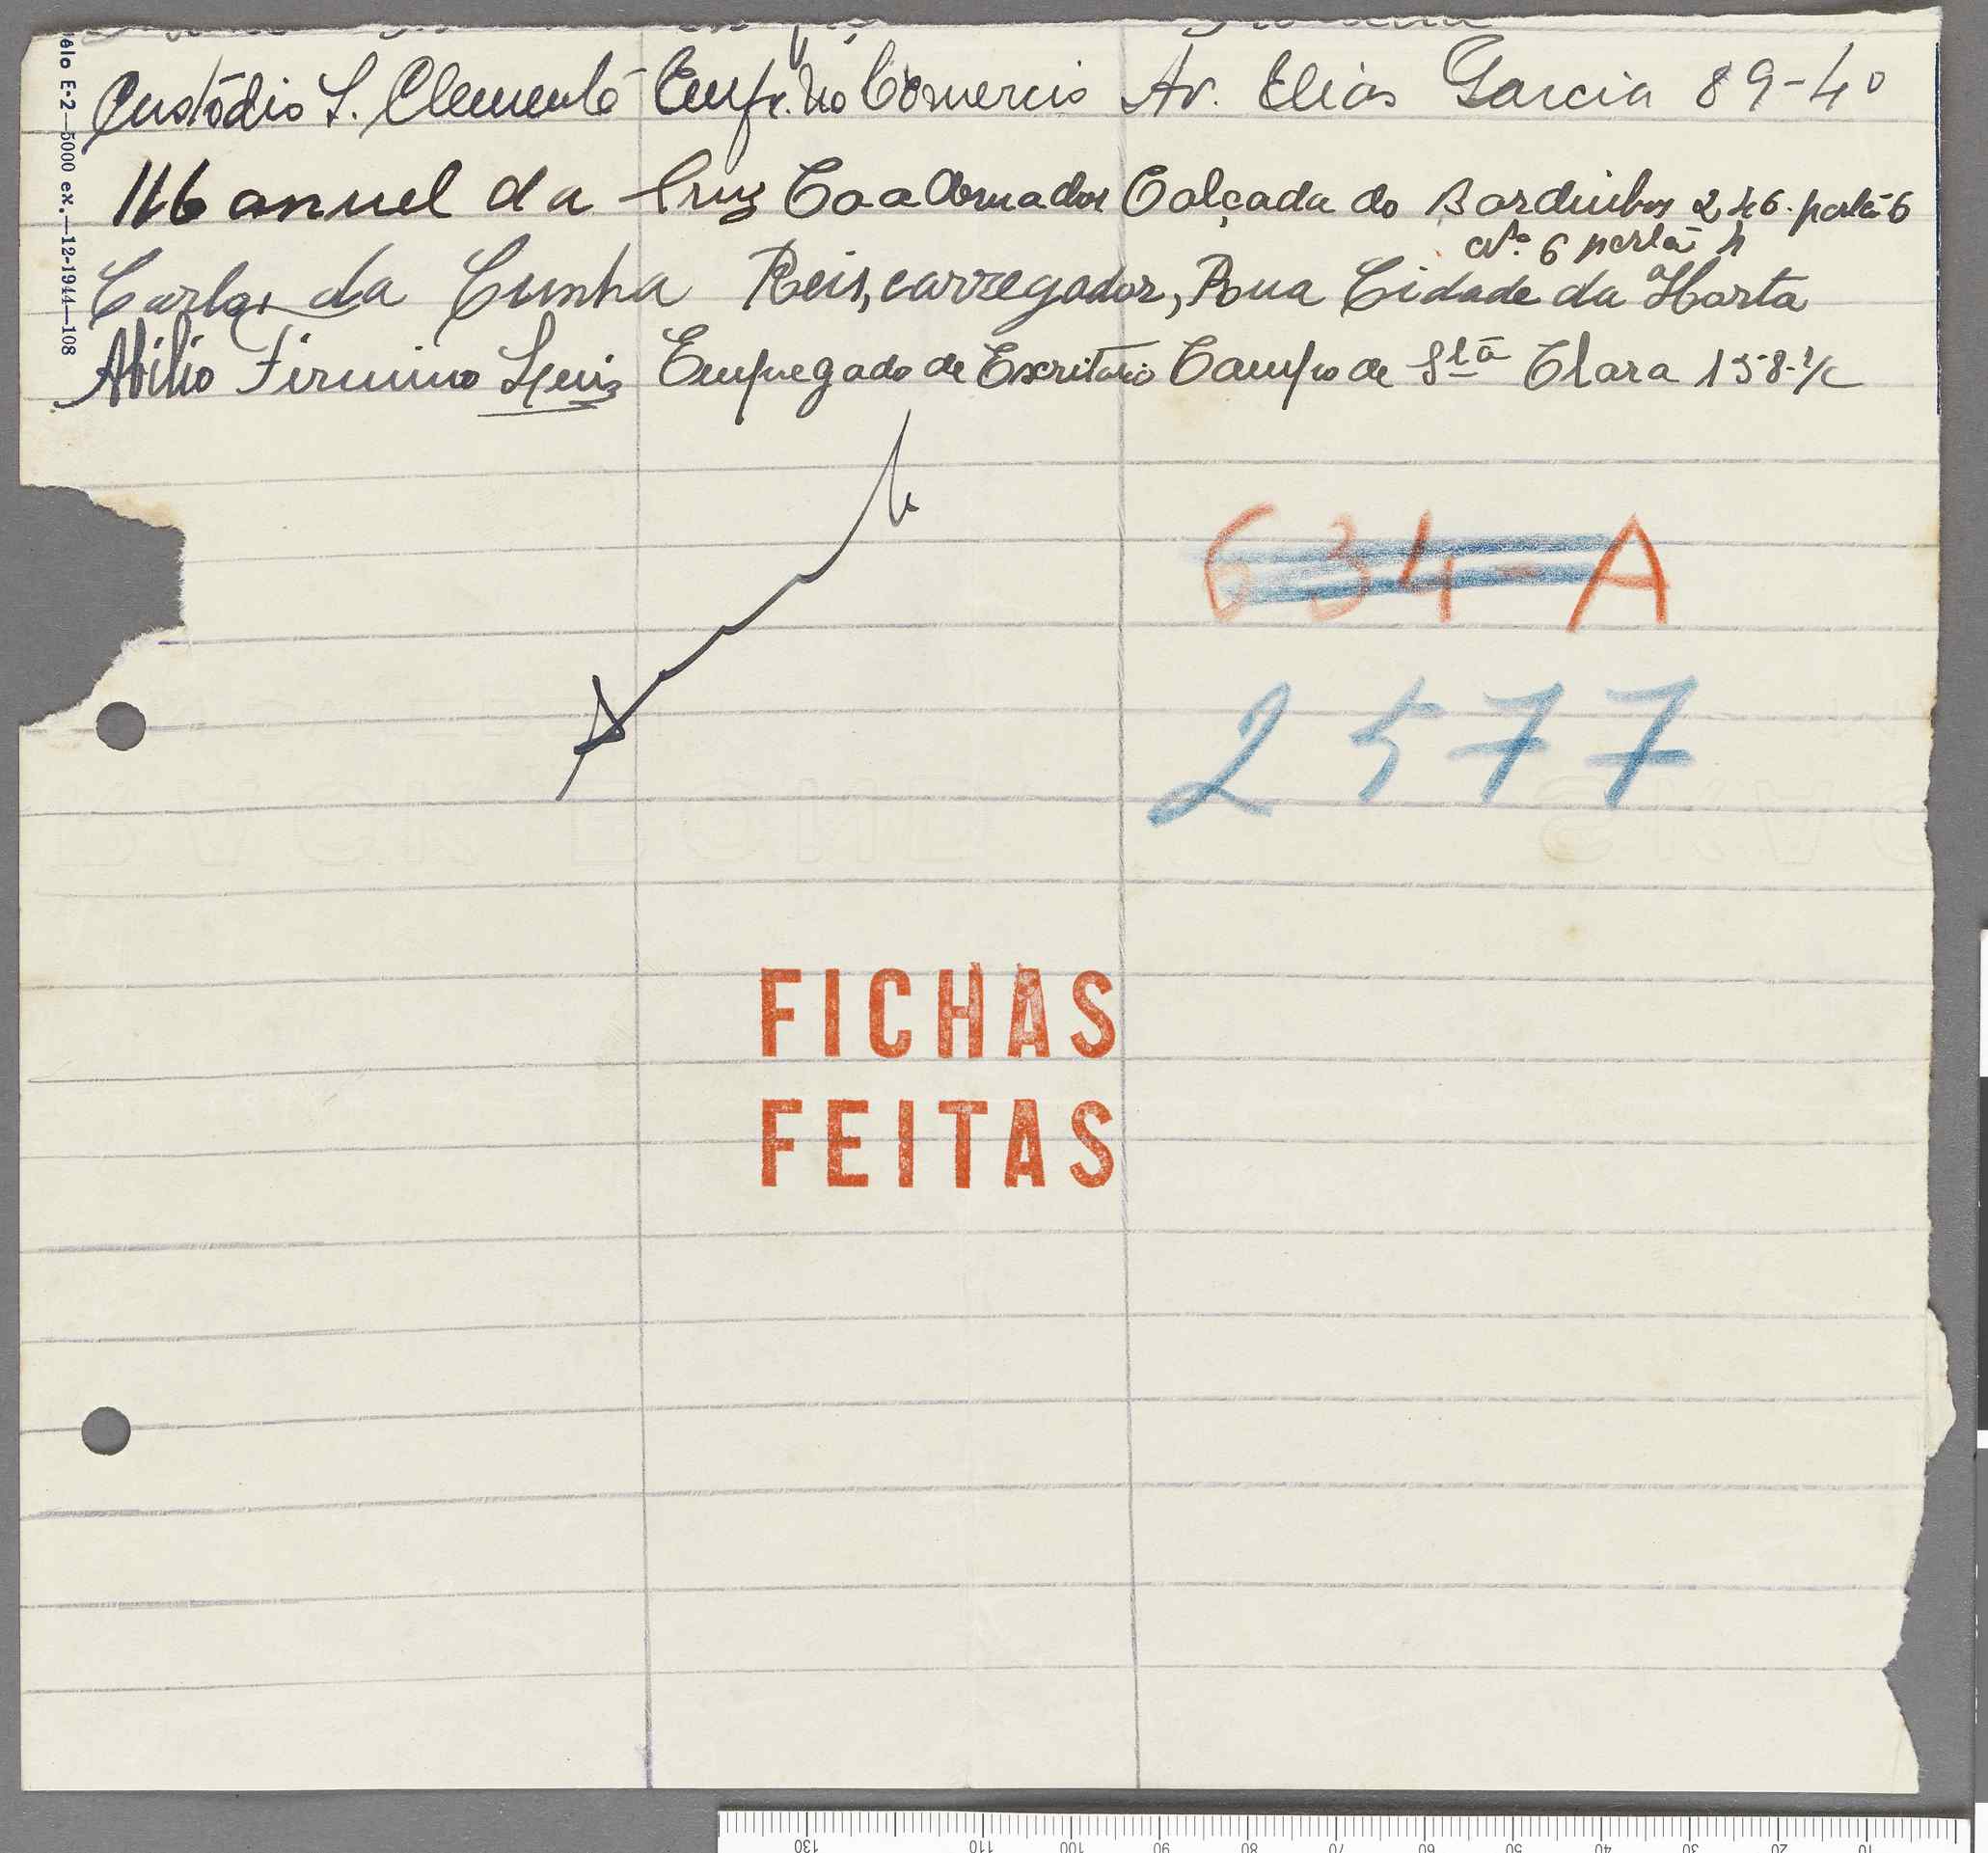 Custódio S. Clemente Empr. no Comercio Av. Elias Garcia 89-4º
Manuel da Cruz Calçada do 246. porta 6
Nº 6 porta
Carlos da Cunha Reis, carregador, Rua Cidade da Horta
Abilio Firmino Luis Empregado de Escritório Campo de Stª Clara 158-r/c
634-A
2577
FICHAS
FEITAS
elo E-2—5000 ex.—12-1944—108
130 110 100 90 80 70 60 50 40 30 20 10